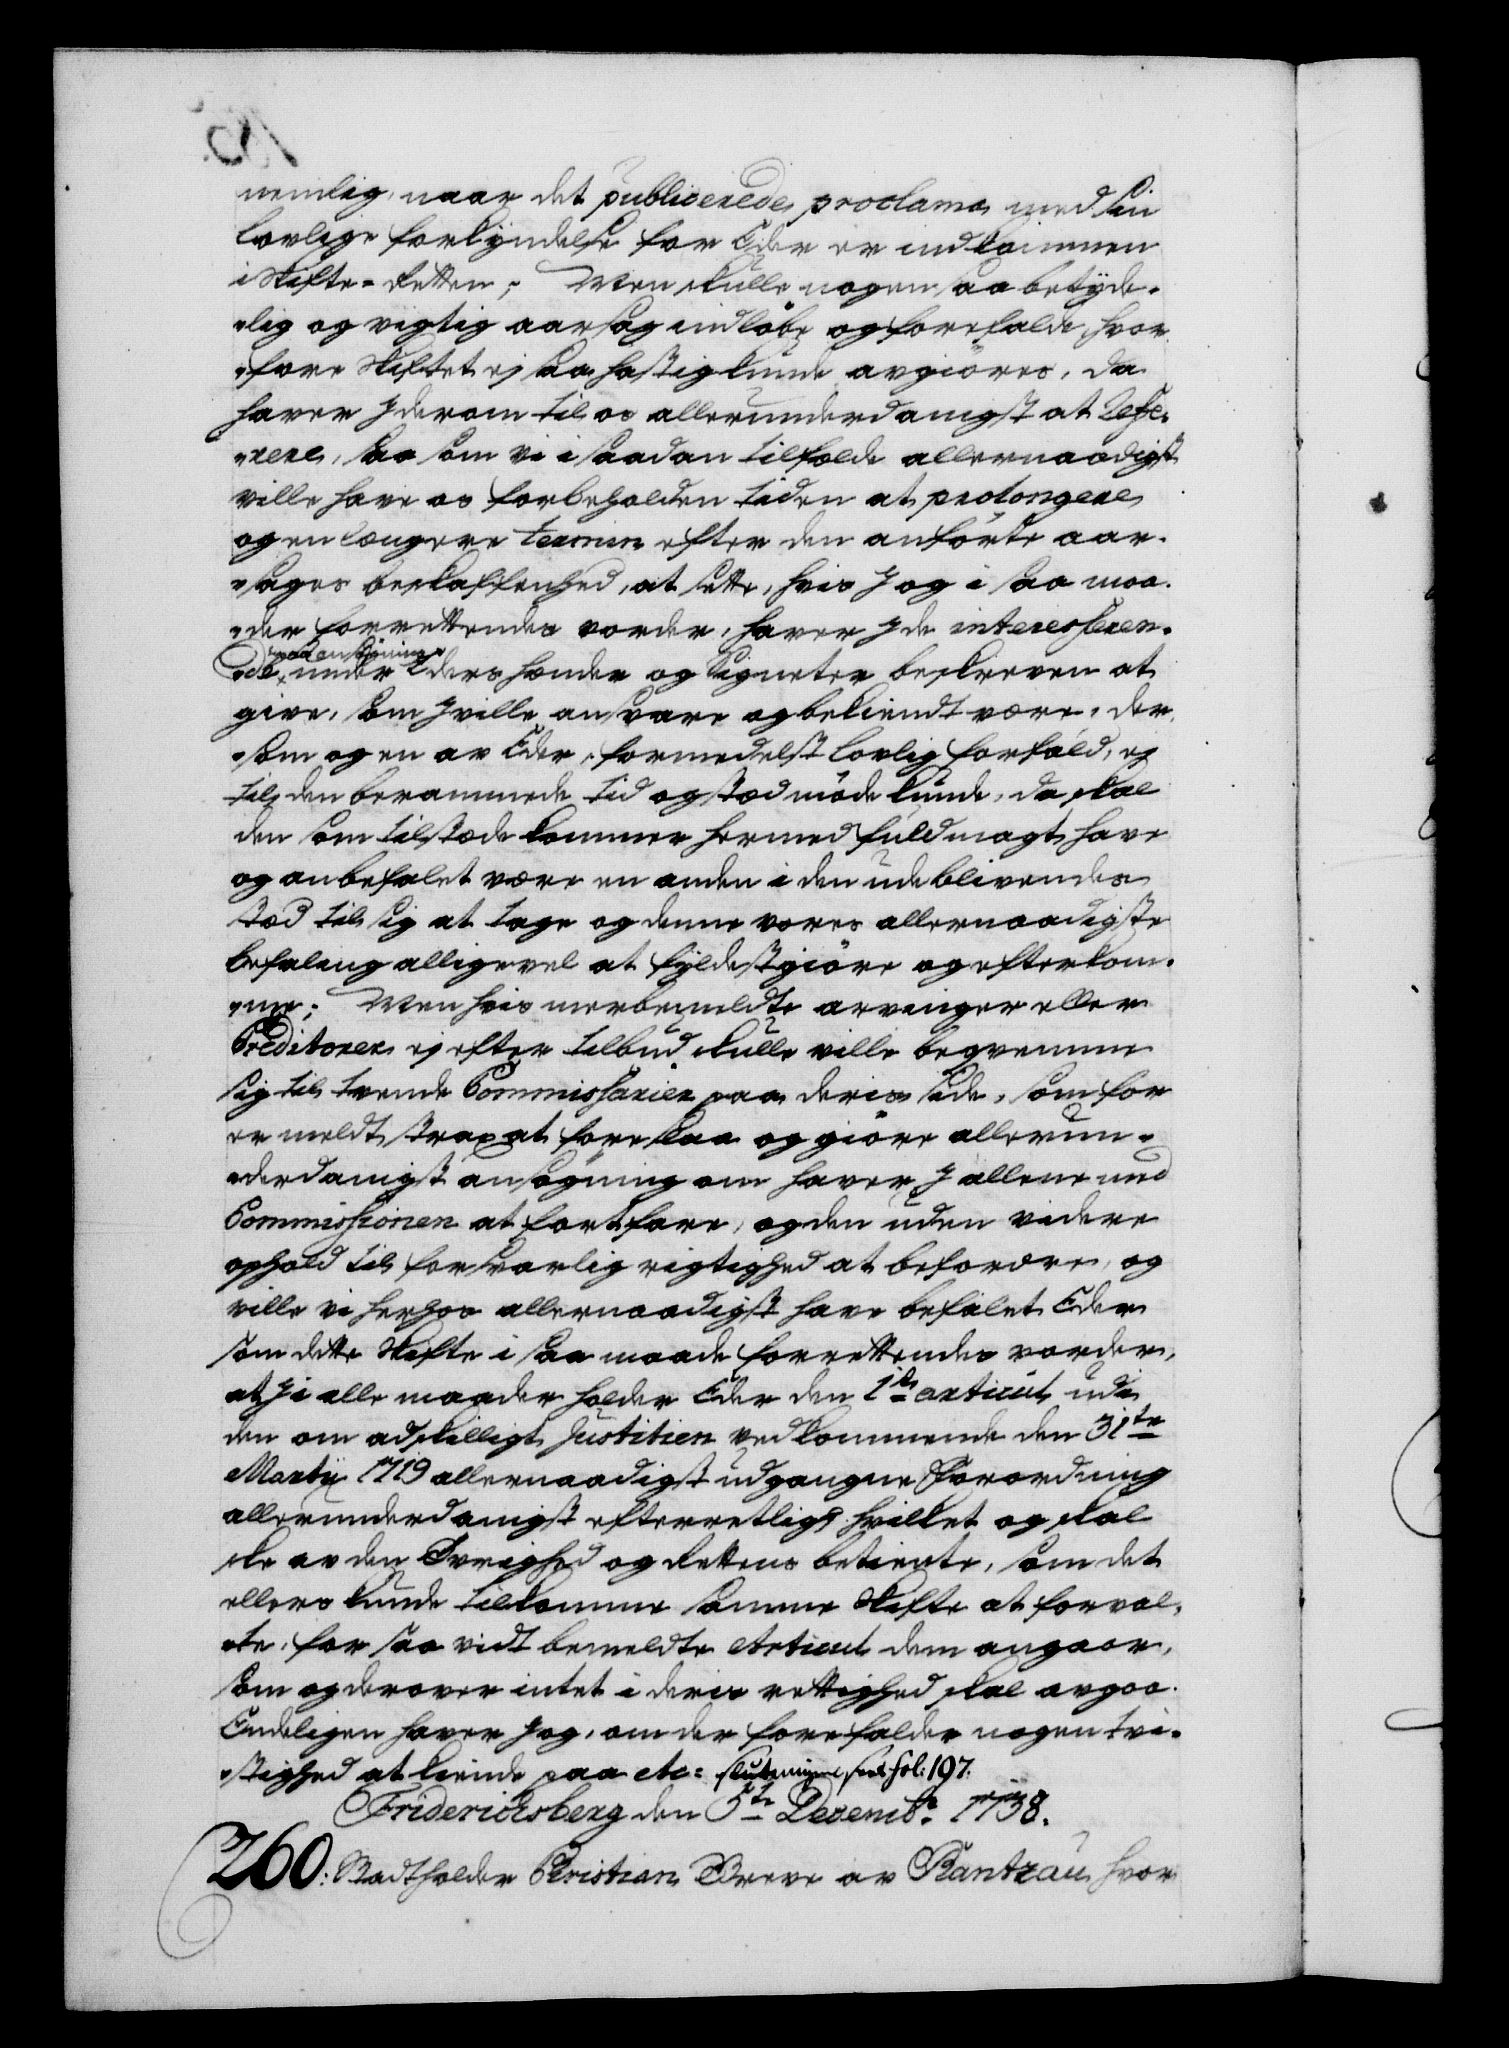 nemlig, naar det publicerede proclama med sin
lovlige forkyndelse for Eder er indkommen
i Skifte-Retten; Men skulle nogen saa betyde-
lig og vigtig aarsag indløbe og forefalde, hvor-
fore Skiftet ej saa hastig kunde avgiöres, da
haver I derom til os allerunderdanigst at Refe-
rere, saa som vi i saadan tilfælde allernaadigst
ville have os forbeholden tiden at prolongere
og en længere termin efter den anförte aar-
sages beskaffenhed, at sette, hvis I og i saa maa-
der forrettendes vorder, haver I de interesseren-
de, under Eders hænder og Signeter beskreven at
give, som I ville ansvare og bekiendt være, der-
som og en av Eder, formedelst lovlig forfald, ej
til den berammede tid og stæd möde kunde, da skal
den som tilstæde kommer hermed fuldmagt have
og anbefalet være en anden i den udeblivendes
stæd til sig at tage og denne vores allernaadigste
befaling alligevel at fyldestgiöre og efterkom-
me; Men hvis merbemeldte arvinger eller
Creditorer ej efter tilbud skulle ville beqvemme
sig til trende Commissarier paa deris side, som for
er meldt strax at foreslaa og giöre allerun-
derdanigst ansögning om haver I allene med
Commissionen at fortfare, og den uden videre
ophold til forsvarlig rigtighed at befordre, og
ville vi herhos allernaadigst have befalet Eder
som dette Skifte i saa maade forrettendes vorder,
at I i alle maader holder Eder den 1te articul udi
den om adskilligt Justitien vedkommende den 31te
Martii 1719 allernaadigst udgangne Forordning
allerunderdanigst efterretlig, hvilket og skal
ske av den Øvrighed og Rettens betiente, som det
ellers kunde tilkomme samme Skifte at forval-
te, for saa vidt bemeldte Articul dem angaar,
som og derover intet i deris rettighed skal avgaa.
Endeligen haver I og, om der forefalder nogen tvi-
stighed at kiende paa etc: slutningen fol: 197.
Friderichsberg den 5te Decembr: 1738.
260: Stadtholder Christian Greve av Rantzau, hvor